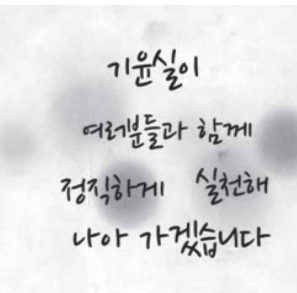 기윤실이
여러분들과 함께
정직하게 실천해
나아 가겠습니다